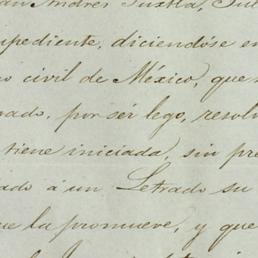 an Andrés Tuxtla, Ju
pediente, diciendóse en
o civil de México, que
rado, por sér lego, resolv
tiene iniciada, sin pre
ado á un Letrado su
ue la promueve, y que